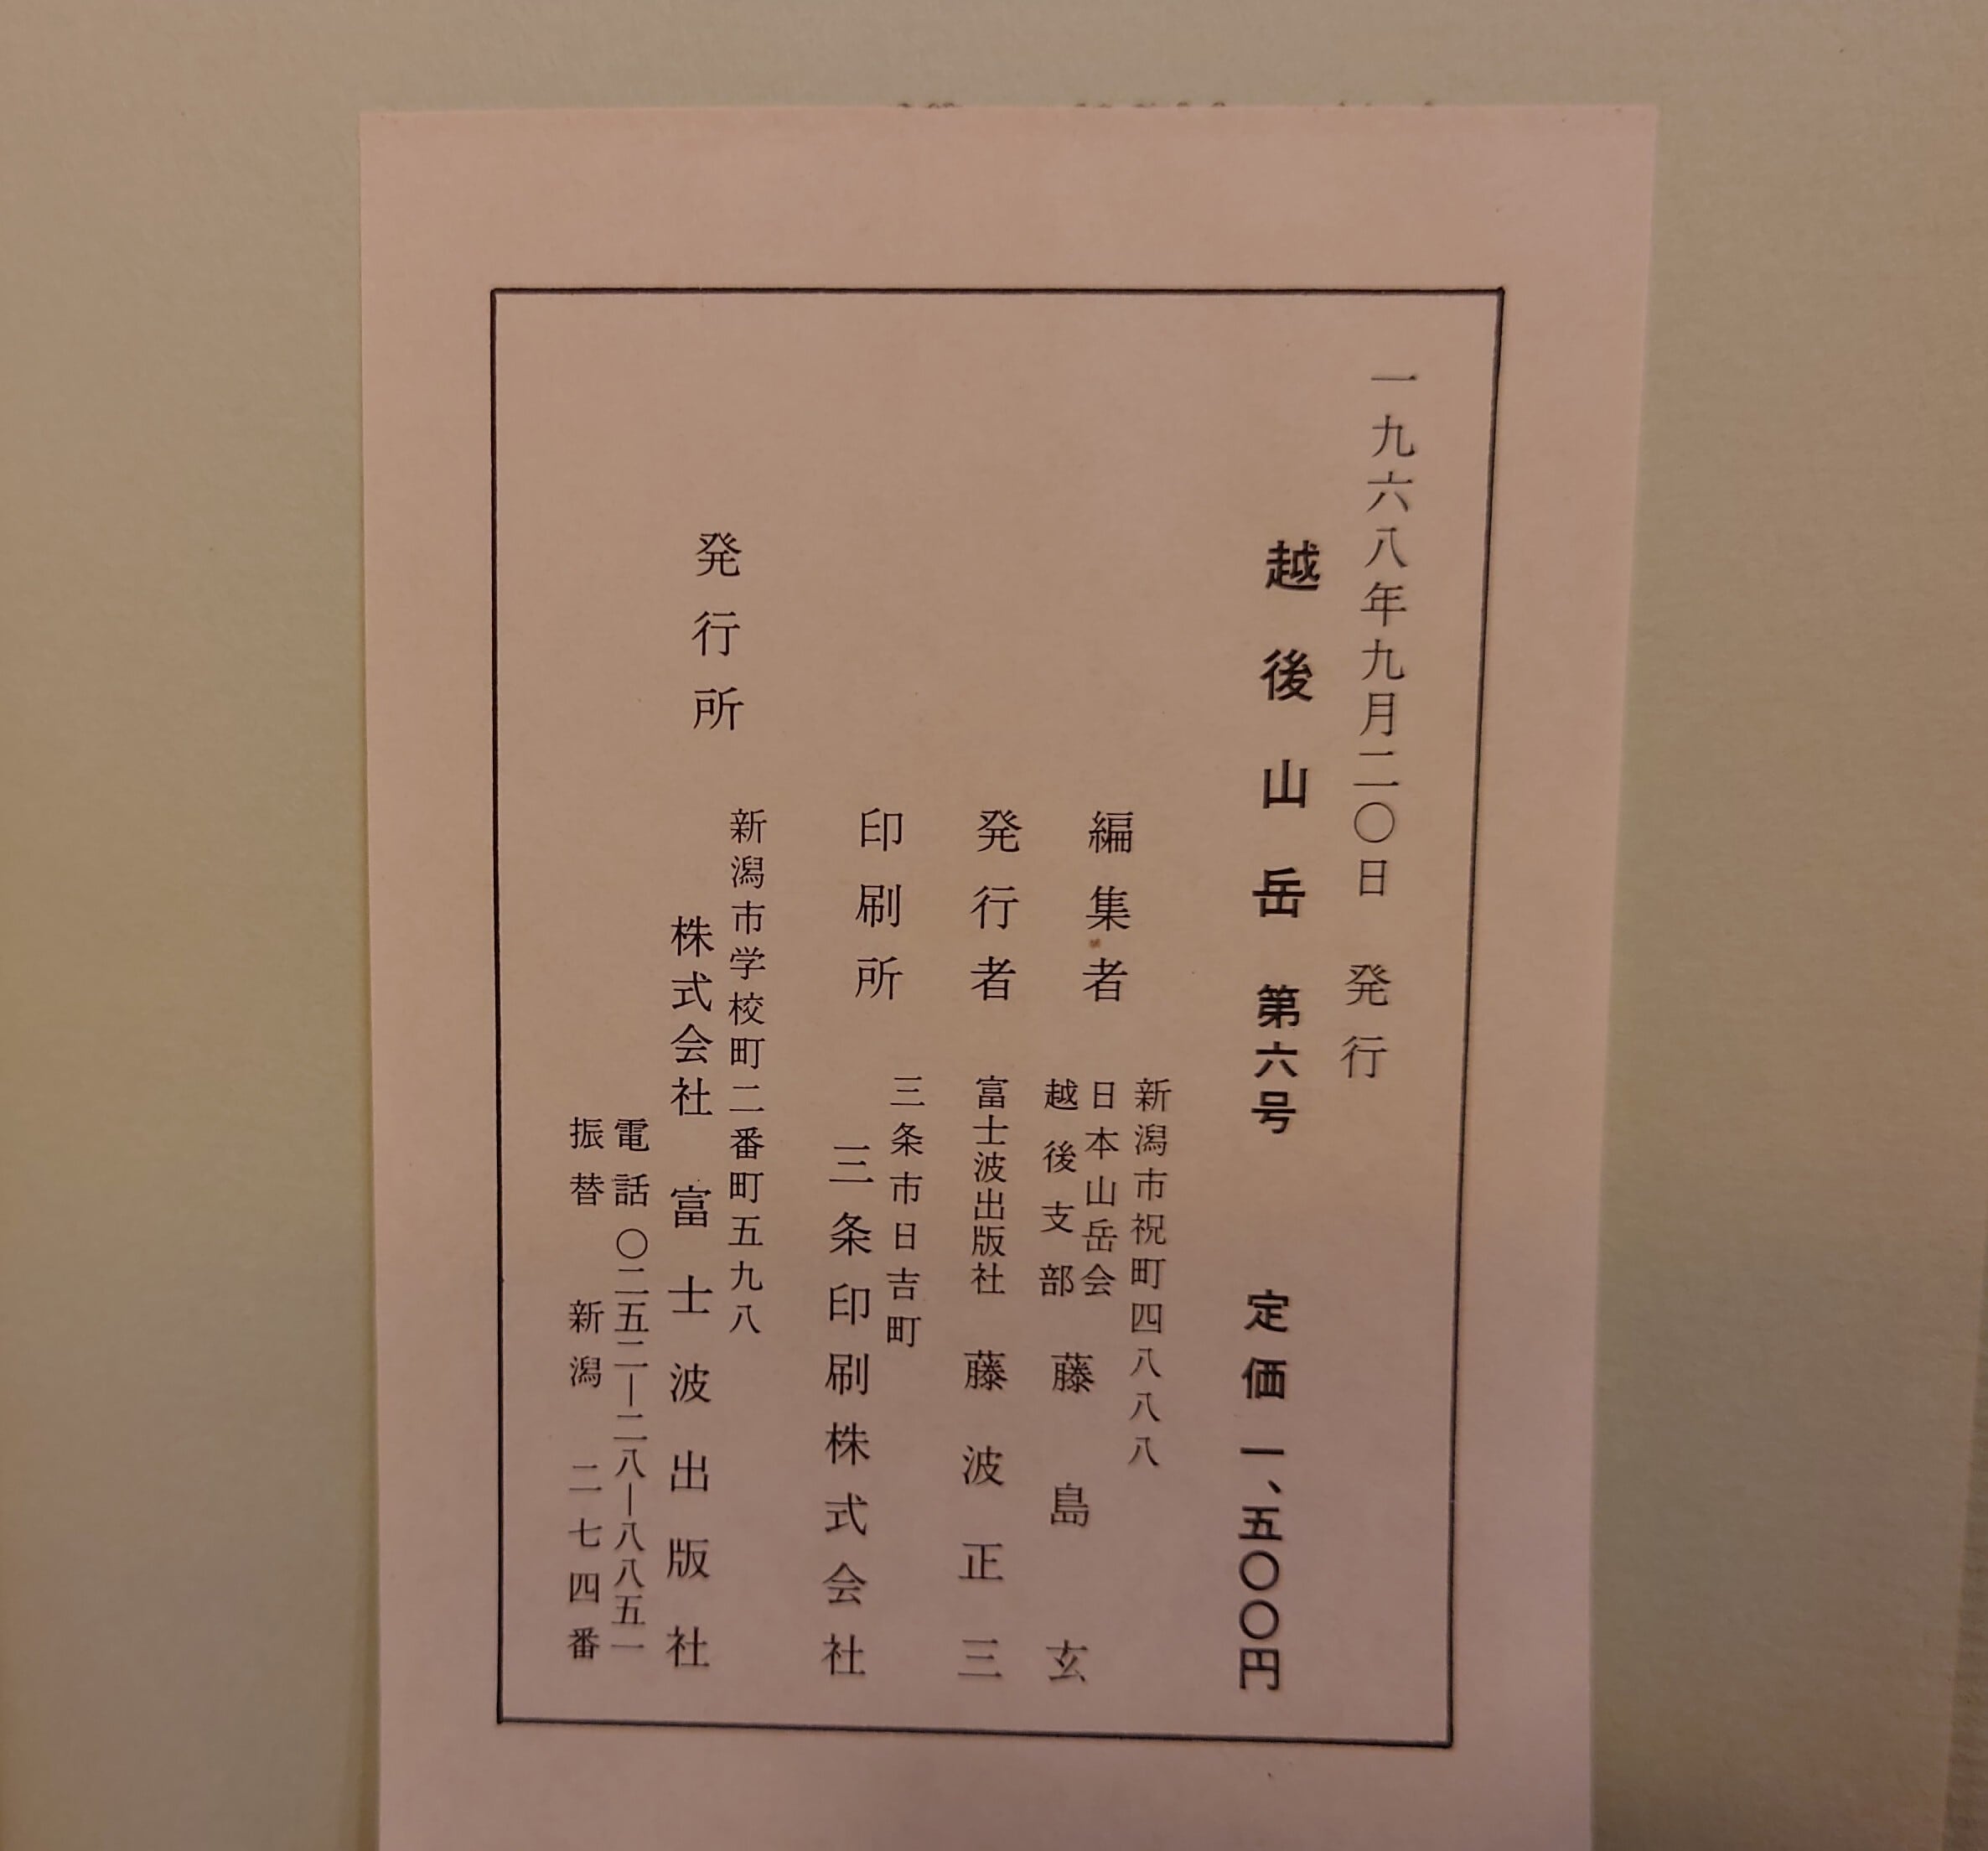 一九六八年九月二〇日　発行
越後山岳　第六号　　定価一、五〇〇円
新潟市祝町四八八八
編集者　日本山岳会
越後支部　藤島玄
発行者　富士波出版社　藤波正三
三条市日吉町
印刷所　三条印刷株式会社
新潟市学校町二番町五九八
発行所　株式会社　富士波出版社
電話〇二五二―二八―八八五一
振替　新潟　二七四番